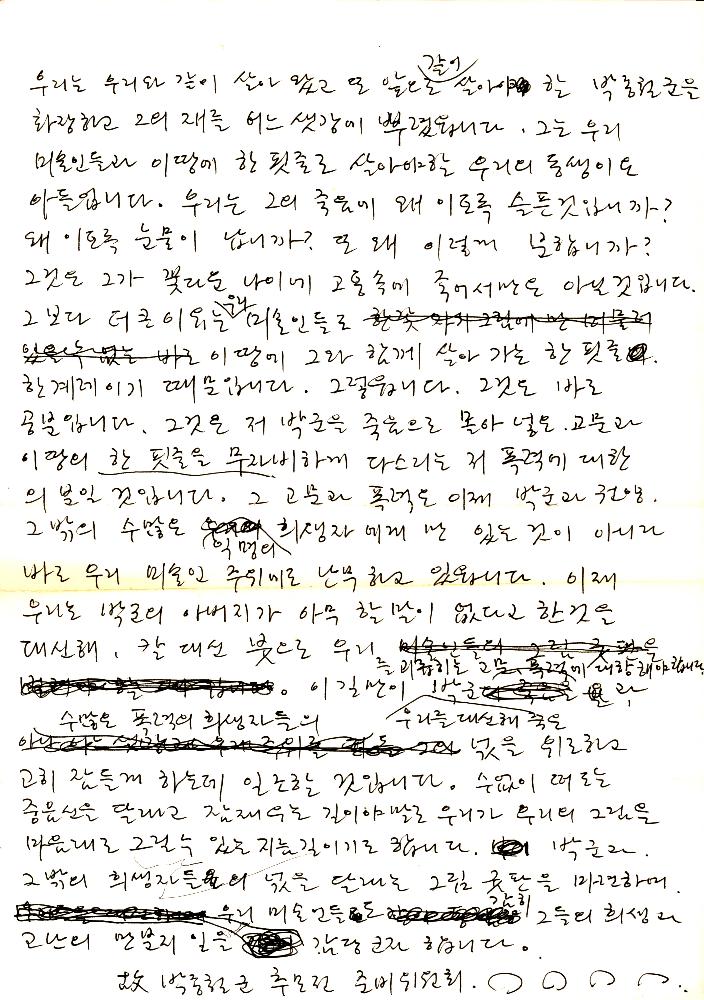 우리는 우리와 같이 살아 왔고 또 앞으로 같이 살아야 할 박종철군을
화장하고 그의 재를 어느 샛강에 뿌렸읍니다. 그는 우리
미술인들과 이땅에 한 핏줄로 살아야할 우리의 동생이요
아들입니다. 우리는 그의 죽음에 왜 이토록 슬픈것입니까?
왜 이토록 눈물이 납니까? 또 왜 이렇게 분합니까?
그것은 그가 꽃다운 나이에 고통속에 죽어서만은 아닐것입니다.
그보다 더 큰 이유는 우리 미술인들도
이땅에 그와 함께 살아 가는 한 핏줄
한겨레이기 때문입니다. 그렇읍니다. 그것은 바로
공분입니다. 그것은 저 박군을 죽음으로 몰아 넣은 고문과
이땅의 한 핏줄을 무자비하게 다스리는 저 폭력에 대한
의분일 것입니다. 그 고문과 폭력은 이제 박군과 권양,
그 밖의 수많은 익명의 희생자에게만 있는 것이 아니라
바로 우리 미술인 주위에도 난무하고 있읍니다. 이제
우리는 박군의 아버지가 아무 할말이 없다고 한것을
대신해, 칼 대신 붓으로 우리
를 괴롭히는 고문, 폭력에 대항해야합니다
. 이길만이 박군과,
수많은 폭력의 희생자들의 우리를 대신해 죽은
넋을 위로하고
고히 잠들게 하는데 일조할 것입니다. 수없이 떠도는
중음신을 달래고 잠재우는 길이야말로 우리가 우리의 그림을
마음대로 그릴수 있는 지름길이기도 합니다. 박군과
그밖의 희생자들의 넋을 달래는 그림 굿판을 마련하며,
우리 미술인들도 감히 그들의 희생과
고난의 만분지 일을 감당코자 합니다.
故 박종철군 추모전 준비위원회.